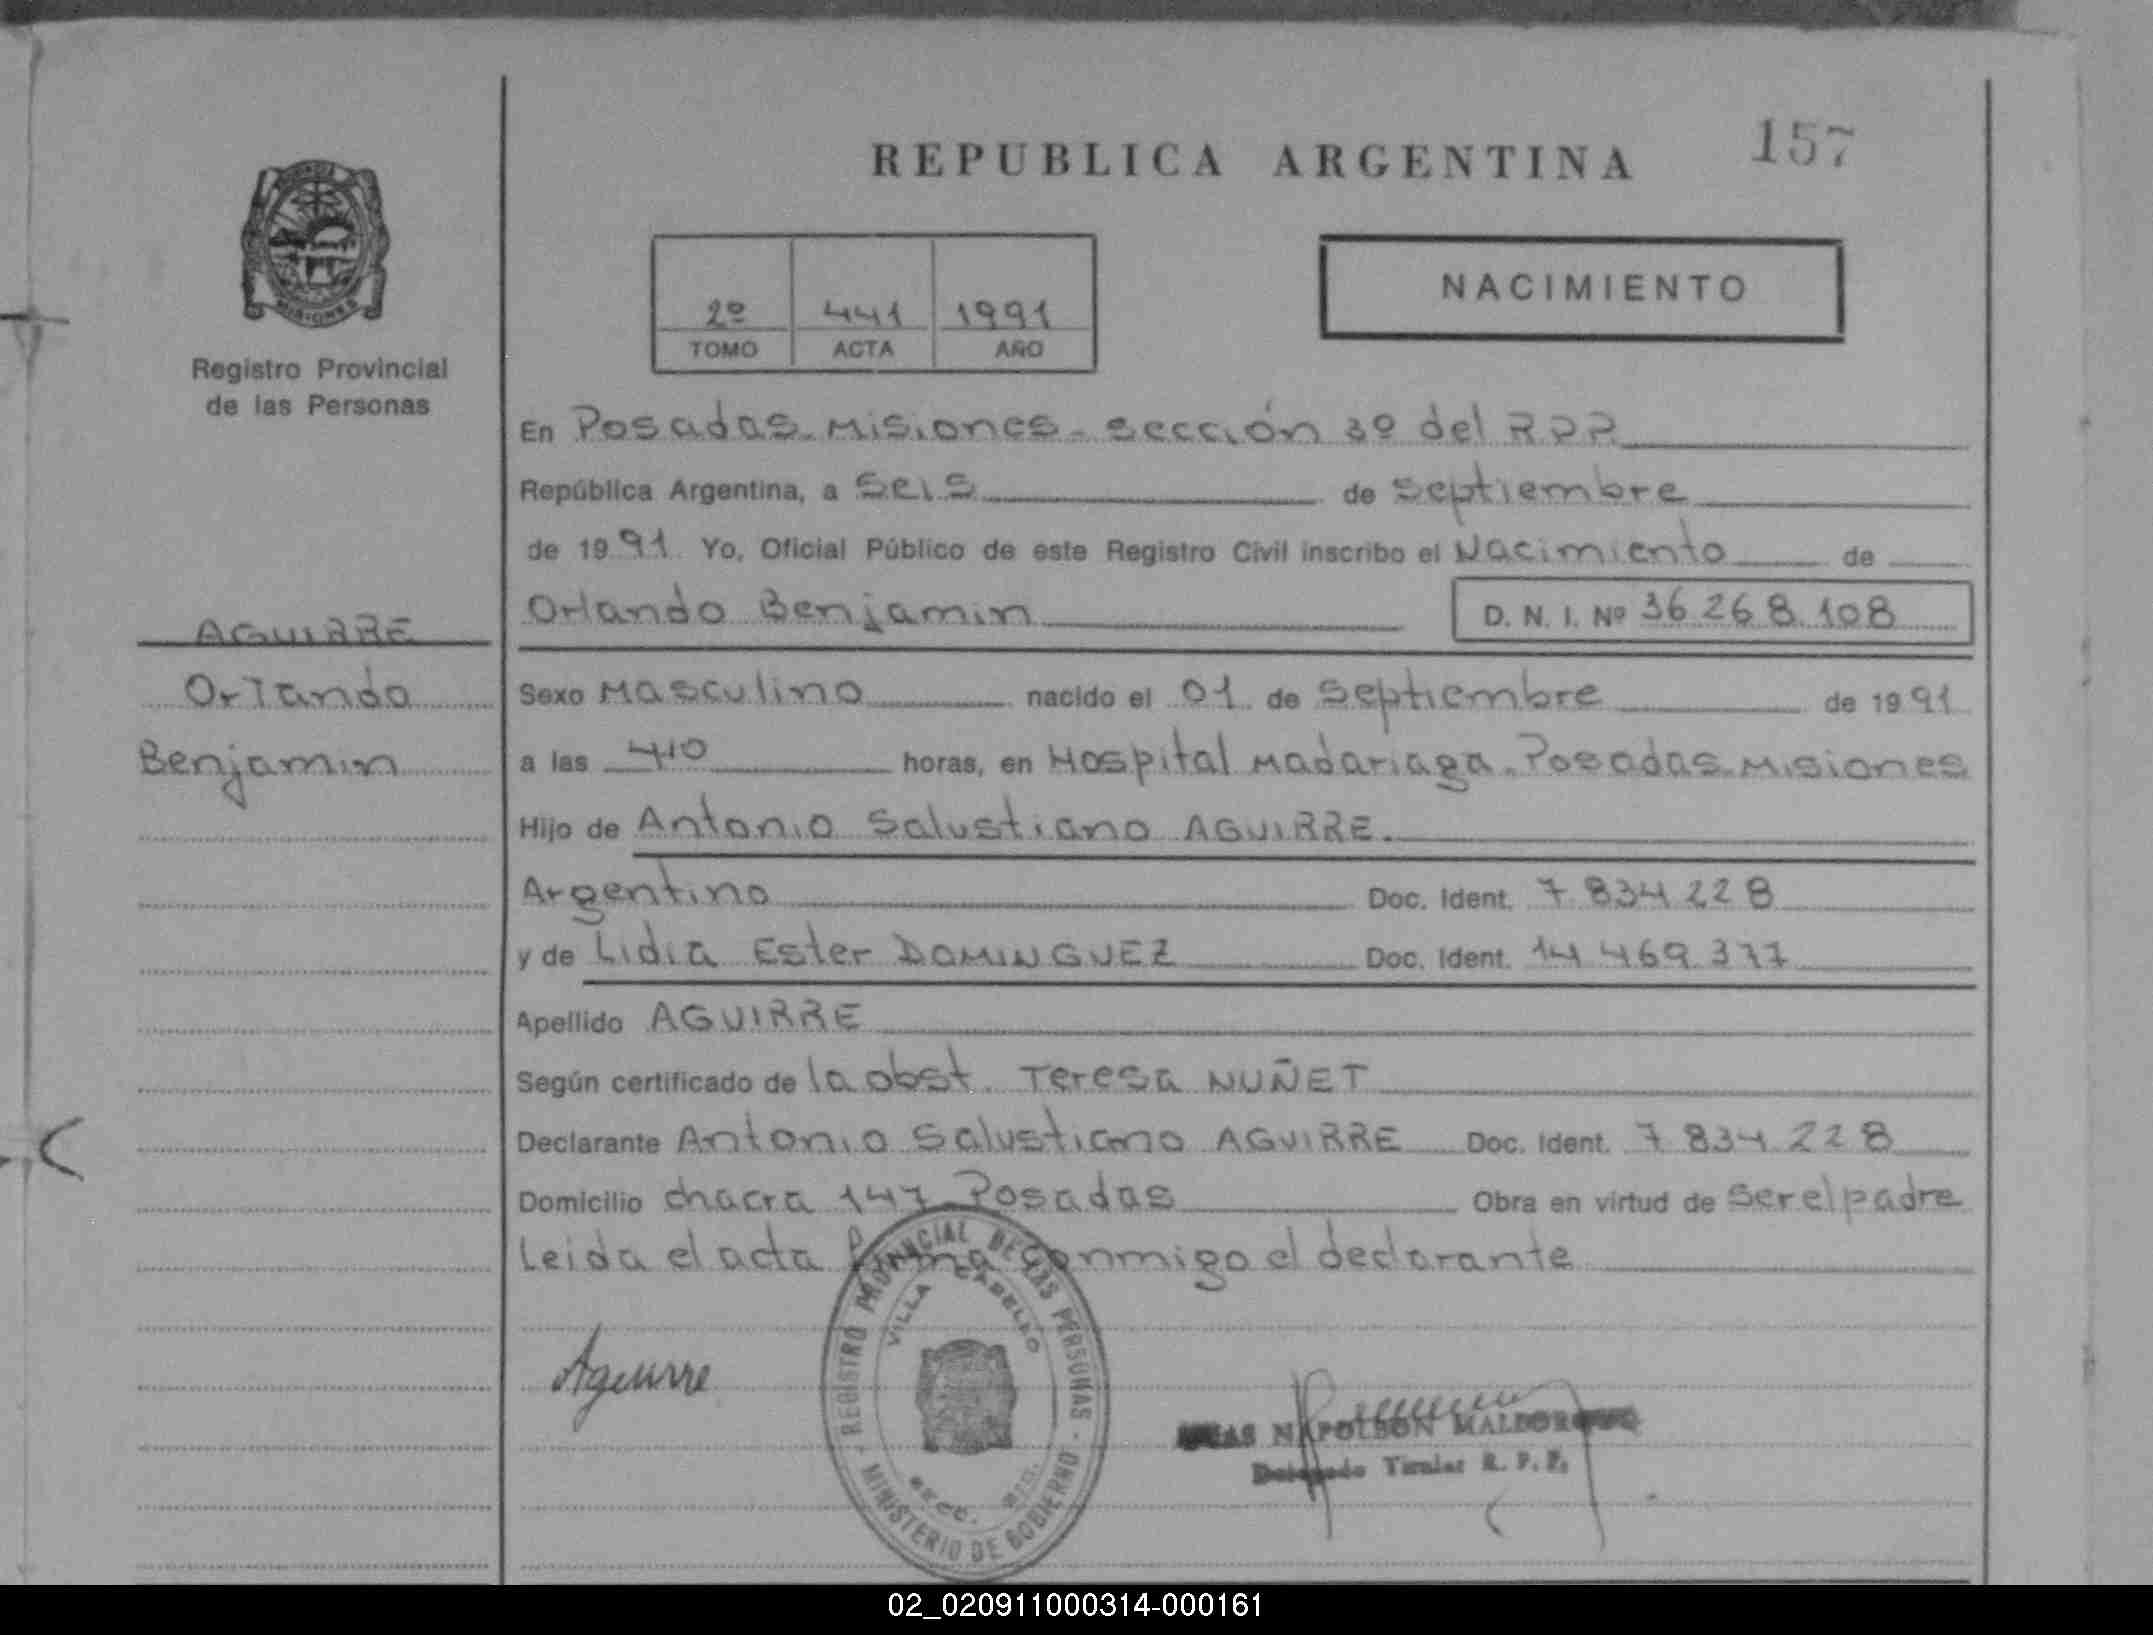 REPUBLICA ARGENTINA
157
MISIONES
Registro Provincial
de las Personas
2º 441 1991
TOMO ACTA AÑO
NACIMIENTO
En Posadas-Misiones-sección 3º del R.P.P.
República Argentina, a Seis de Septiembre
de 1991 Yo, Oficial Público de este Registro Civil inscribo el Nacimiento de
Orlando Benjamin
D. N. I. Nº 36.268.108
AGUIRRE
Orlando
Benjamin
Sexo Masculino nacido el 01 de Septiembre de 1991
a las 410 horas, en Hospital Madariaga-Posadas-Misiones
Hijo de Antonio Salustiano AGUIRRE.
Argentino Doc. Ident. 7.834.228
y de Lidia Ester DOMINGUEZ Doc. Ident. 14.469.377
Apellido AGUIRRE
Según certificado de la obst. Teresa NUÑET
Declarante Antonio Salustiano AGUIRRE Doc. Ident. 7.834.228
Domicilio chacra 147 Posadas Obra en virtud de ser el padre
Leida el acta firma conmigo el declarante
Aguirre
REGISTRO PROVINCIAL DE LAS PERSONAS
VILLA CABELLO
MINISTERIO DE GOBIERNO
NAPOLEON
Delegado Titular R. P. P.
02_020911000314-000161